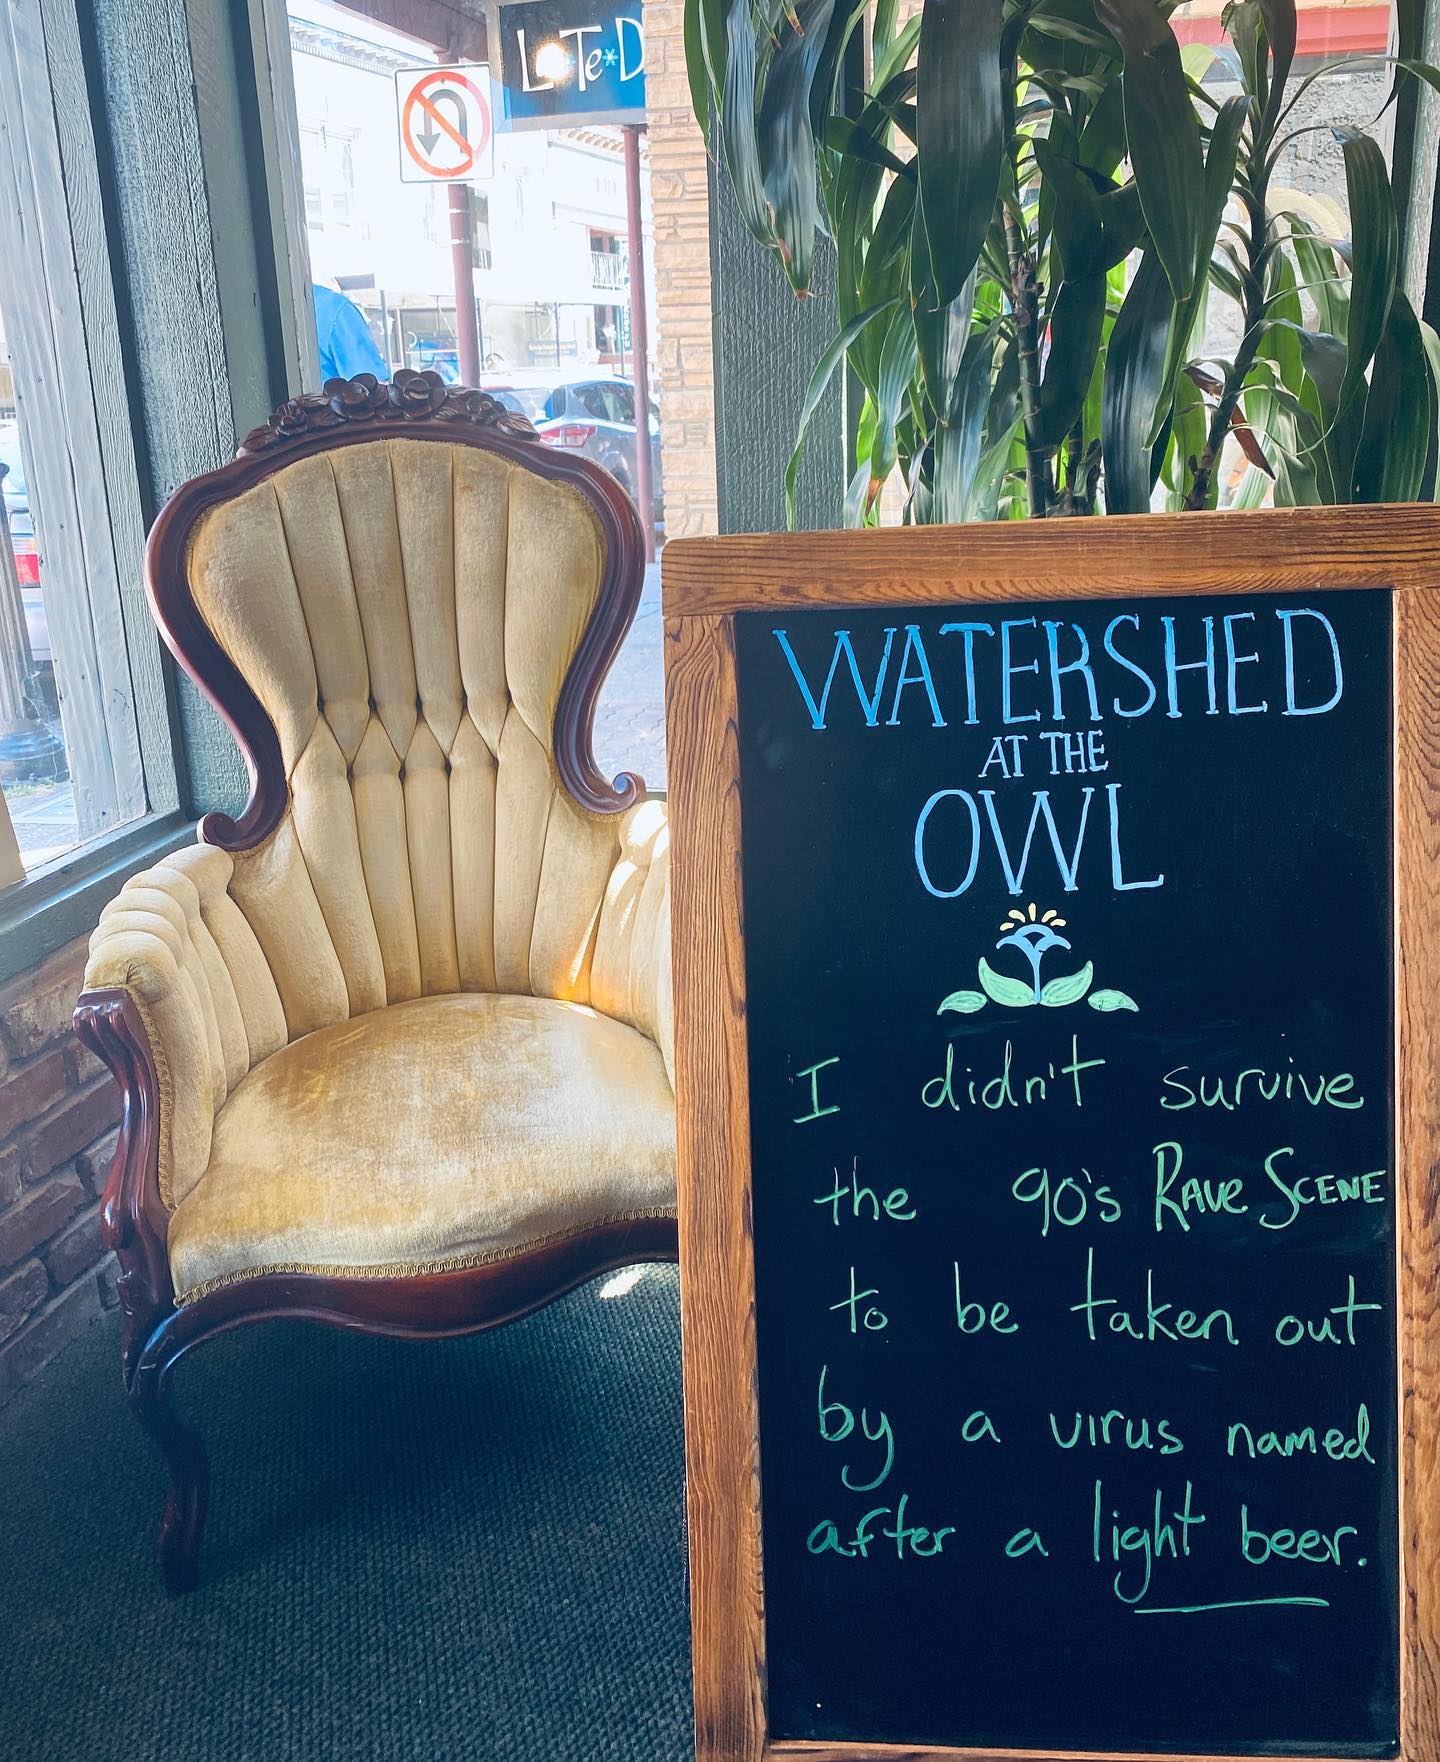 La*Te*D
WATERSHED
AT THE
OWL
I didn't survive
the 90's RAVE SCENE
to be taken out
by a virus named
after a light beer.